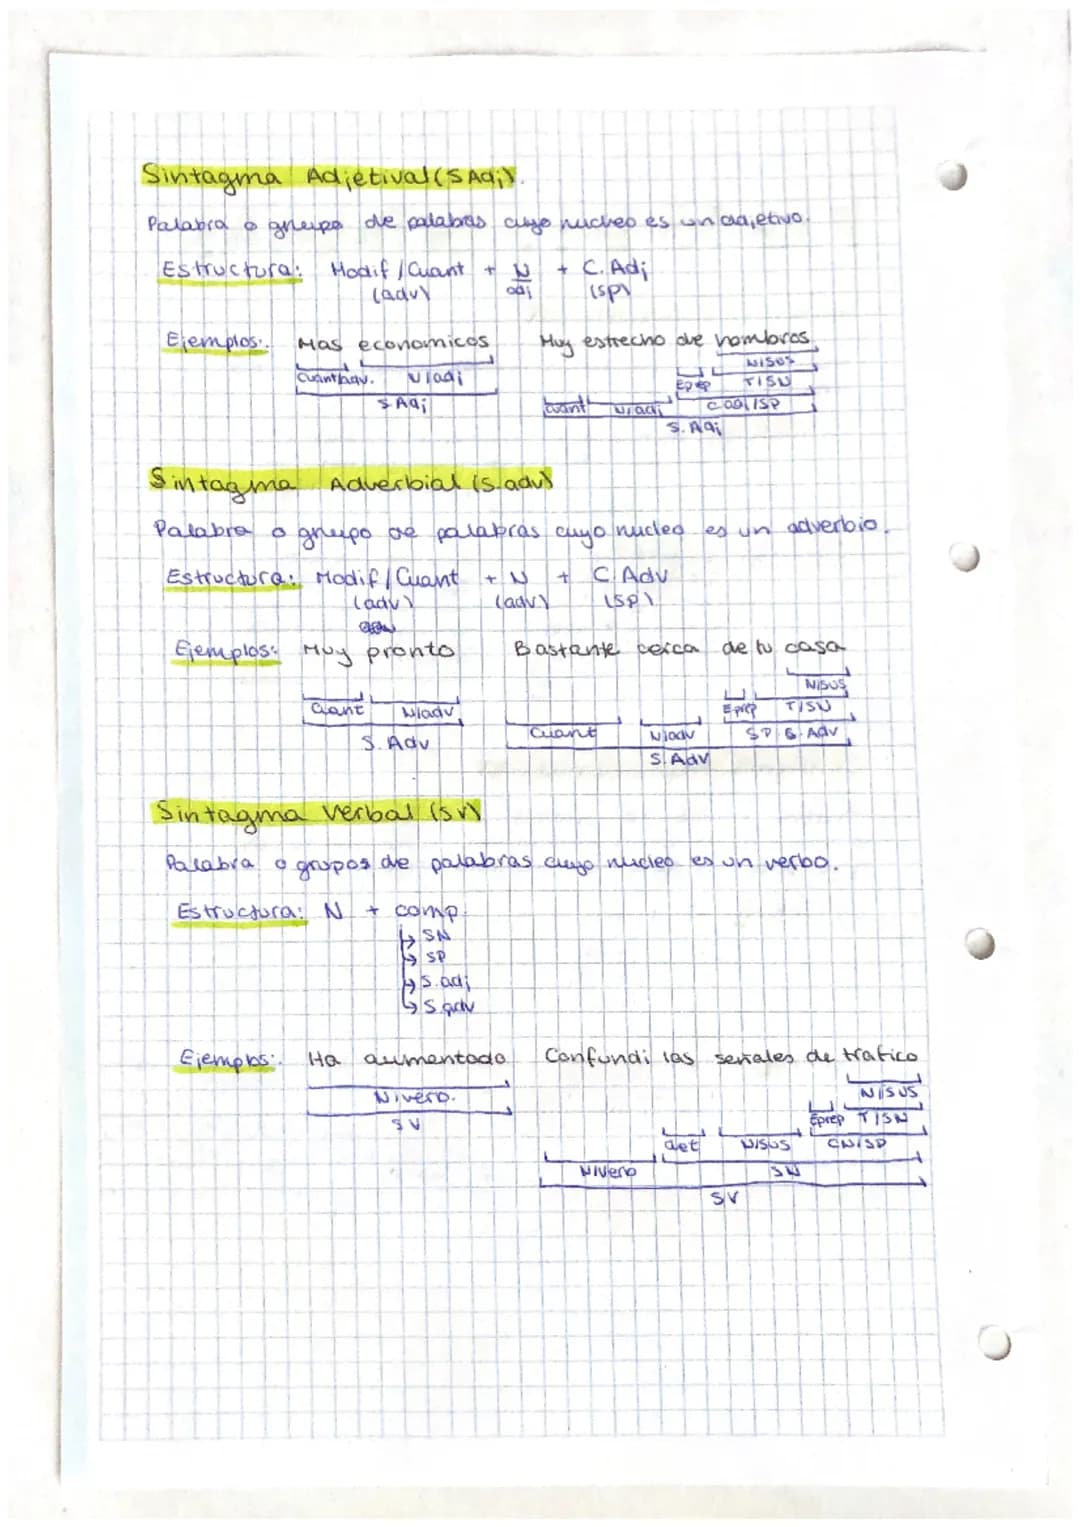 Sintagma Adjetival (S Adj).
Palabra o grupo de palabras cuyo nucleo es un adjetivo.
Estructura: Modif / Cuant + N + C. Adj
(adv) adj (SP)
Ejemplos: Mas economicos Muy estrecho de hombros
N/SUS
Cuant/adv. N/adj E prep T/SN
S Adj Cuant N/adj C adj/SP
S. Adj
Sintagma Adverbial (S.adv)
Palabra o grupo de palabras cuyo nucleo es un adverbio.
Estructura: Modif / Cuant + N + C. Adv
(adv) (adv) (SP)
Ejemplos: Muy pronto Bastante cerca de tu casa
N/SUS
Cuant N/adv E prep T/SN
S. Adv Cuant N/adv SP C. Adv
S. Adv
Sintagma Verbal (SV)
Palabra o grupos de palabras cuyo nucleo es un verbo.
Estructura: N + comp.
↳ SN
↳ SP
↳ S.adj
↳ S.adv
Ejemplos: Ha aumentado Confundi las señales de trafico
N/verb. N/SUS
SV Eprep T/SN
det N/SUS CN/SP
N/Verb SN
SV